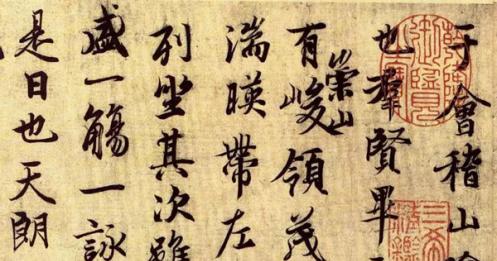 于會稽山陰
也羣賢畢
有崇山峻領茂
湍暎帶左
列坐其次雖
盛一觴一詠
是日也天朗